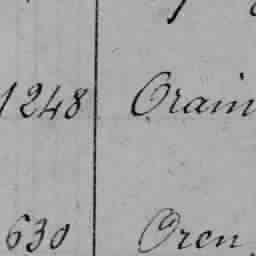 1248 Orain
630 Oren